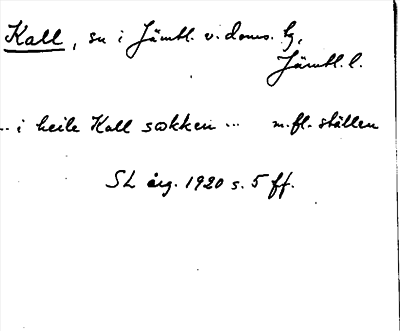 Kall, sn i Jämtl. v. doms. tg,
Jämtl. l.
.. i heile Kall sokken ... m. fl. ställen
SL årg. 1920 s. 5 ff.